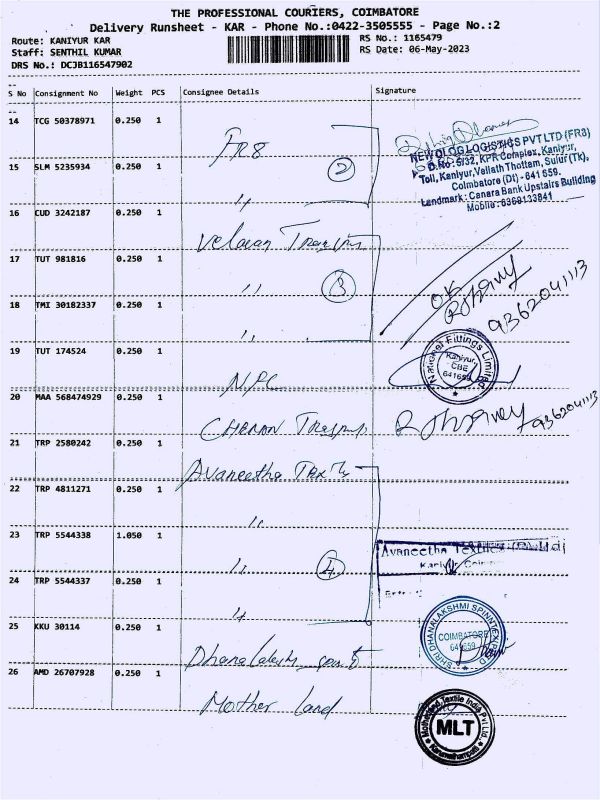 THE PROFESSIONAL COURIERS, COIMBATORE
Delivery Runsheet - KAR - Phone No.:0422-3505555 - Page No.:2
Route: KANIYUR KAR
RS No.: 1165479
Staff: SENTHIL KUMAR
RS Date: 06-May-2023
DRS No.: DCJB116547902
S No Consignment No Weight PCS Consignee Details Signature
14 TCG 50378971 0.250 1
FR8
NEWOLOG LOGISTICS PVT LTD (FR8)
D.No: 5/32, KPR Complex, Kaniyur,
Toll, Kaniyur, Vellath Thottam, Sulur (Tk),
Coimbatore (Dt) - 641 659.
Landmark : Canara Bank Upstairs Building
Mobile: 6369133841
15 SLM 5235934 0.250 1
2
〃
16 CUD 3242187 0.250 1
Velavan
17 TUT 981816 0.250 1
〃
3
OK
9362041113
18 TMI 30182337 0.250 1
〃
19 TUT 174524 0.250 1
National Fittings Limited
Kaniyur,
CBE
641659
20 MAA 568474929 0.250 1
CHERAN
9362041113
21 TRP 2580242 0.250 1
Avaneetha Tex
22 TRP 4811271 0.250 1
〃
23 TRP 5544338 1.050 1
〃
4
Avaneetha Textiles (P) Ltd
24 TRP 5544337 0.250 1
〃
25 KKU 30114 0.250 1
SHRI DHANALAKSHMI SPINNTEX
COIMBATORE
641659
26 AMD 26707928 0.250 1
Mother land
Motherland Textile India Pvt Ltd.
MLT
Karumathampatti